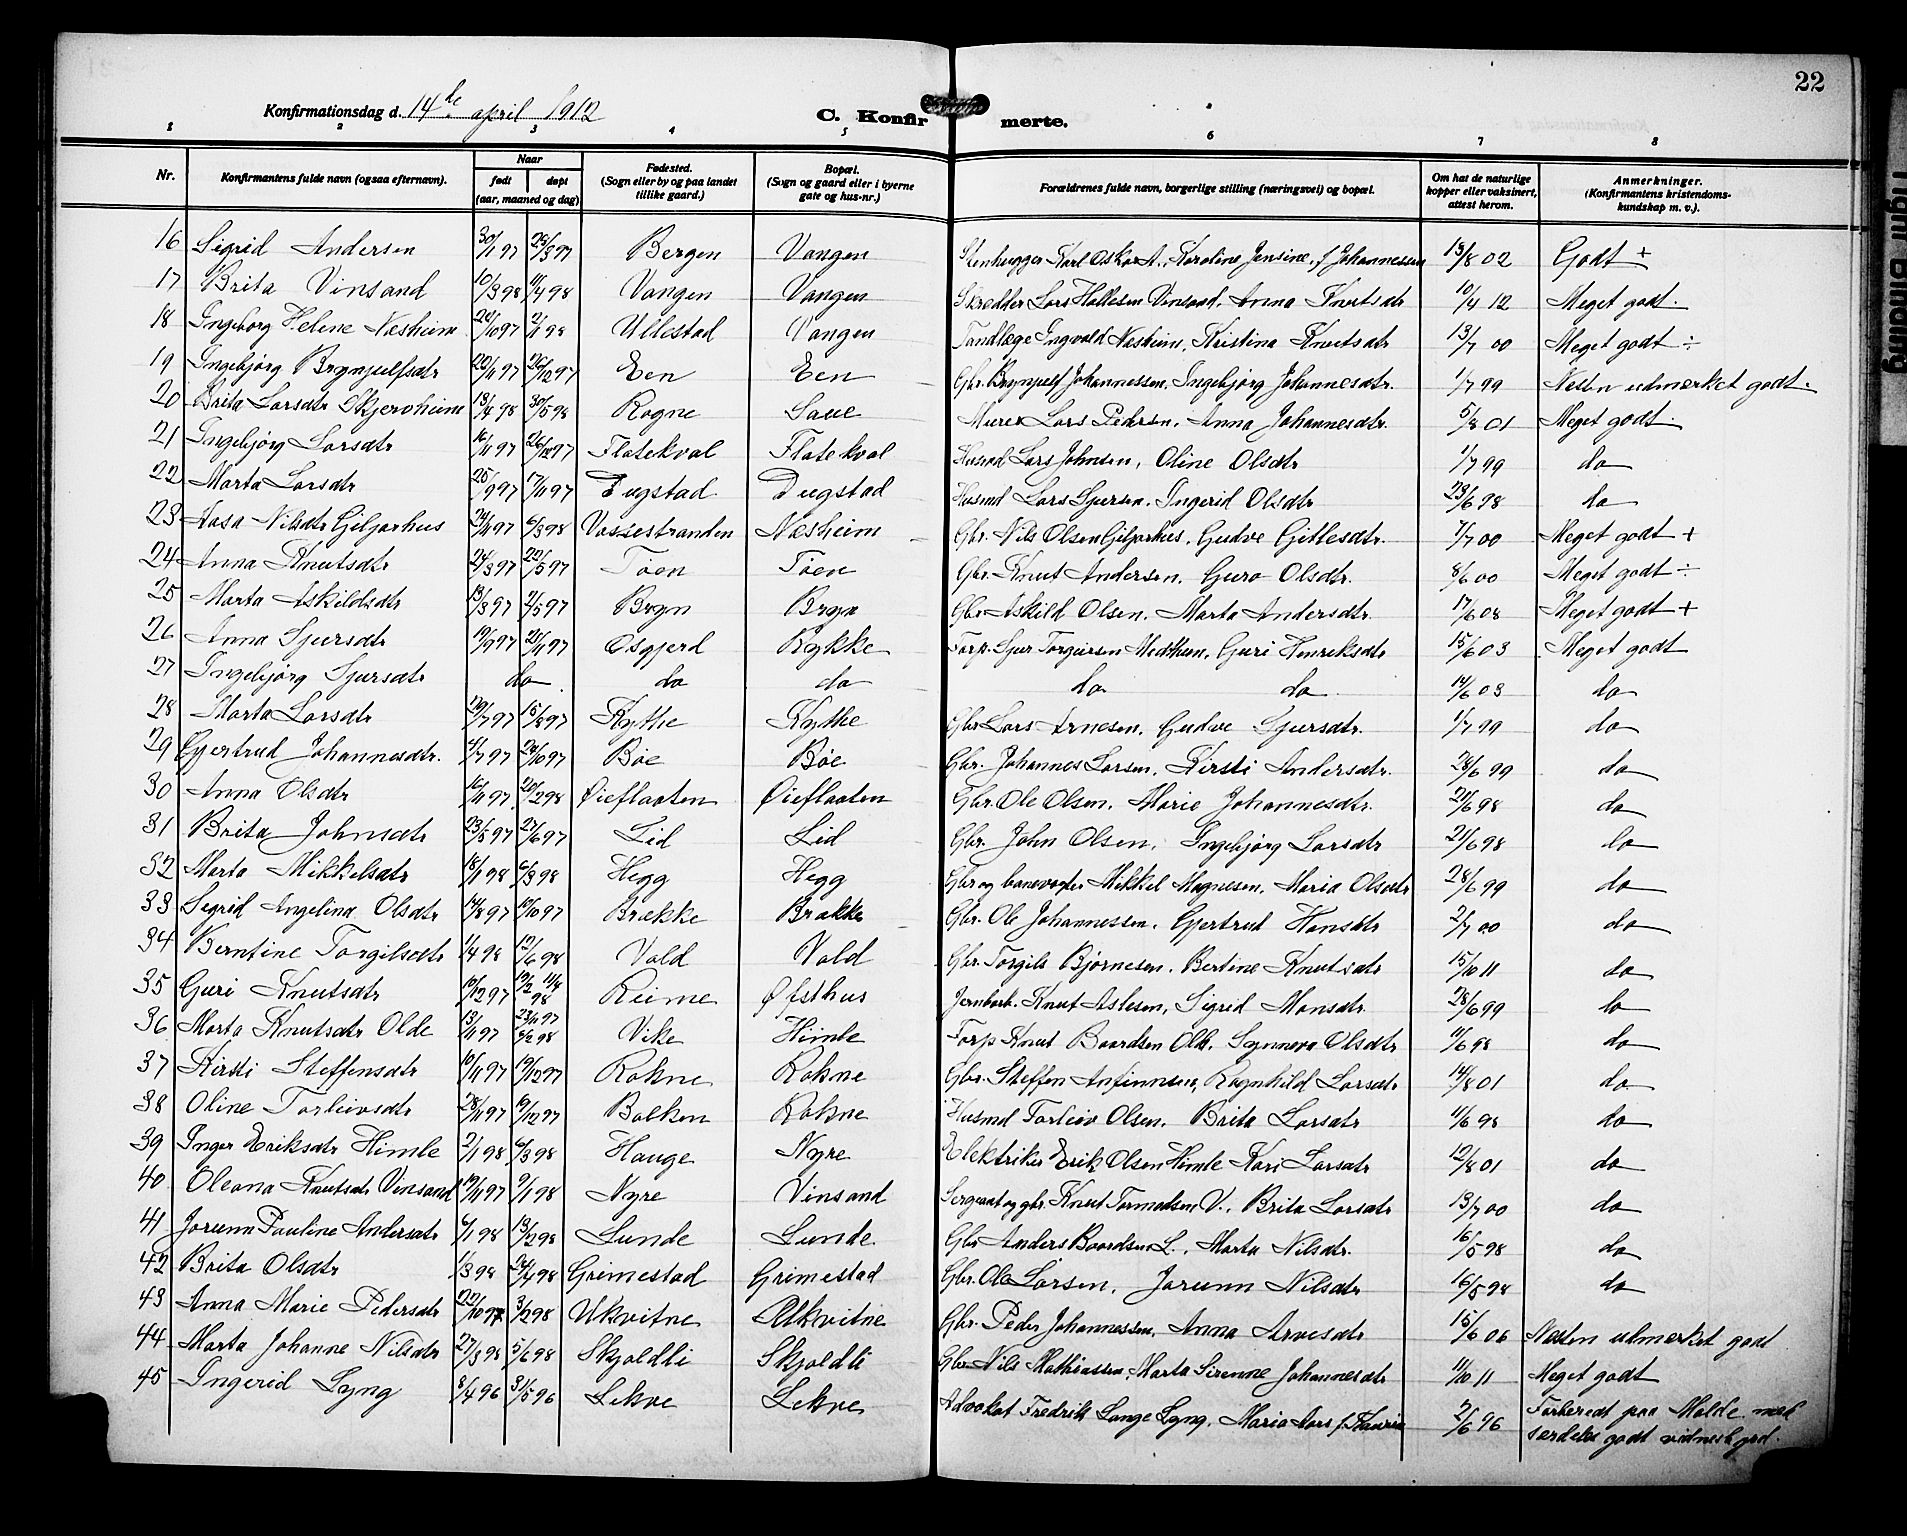 22
Konfirmationsdag d. 14de april 1912
C. Konfirmerte.
1 2 3 4 5 6 7 8
Nr. Konfirmantens fulde navn (ogsaa efternavn). Naar født døpt (aar, maaned og dag) Fødested. (Sogn eller by og paa landet tillike gaard.) Bopæl. (Sogn og gaard eller i byerne gate og hus-nr.) Forældrenes fulde navn, borgerlige stilling (næringsvei) og bopæl. Om hat de naturlige kopper eller vaksinert, attest herom. Anmerkninger. (Konfirmantens kristendomskundskap m. v.).
16 Sigrid Andersen 30/1 97 28/3 97 Bergen Vangen Stenhugger Karl Oskar A., Karoline Jensine, f Johannessen 13/8 02 Godt +
17 Brita Vinsand 10/3 98 11/4 98 Vangen Vangen Skrædder Lars Hallesen Vinsand, Anna Knutsdtr 10/4 12 Meget godt.
18 Ingeborg Helene Næsheim 22/10 97 2/1 98 Ullestad Vangen Tandlæge Ingvald Næsheim, Kristina Knutsdtr 13/7 00 Meget godt ÷
19 Ingebjørg Brynjulfsdtr 22/11 97 26/12 97 Een Een Gbr. Brynjulf Johannessen, Ingebjørg Johannesdtr. 1/7 99 Nesten utmerket godt.
20 Brita Larsdtr Skjerveheim 13/4 98 30/5 98 Rogne Saue Murer Lars Pedersn, Anna Johannesdtr. 5/8 01 Meget godt.
21 Ingebjørg Larsdtr 16/11 97 26/12 97 Flatekval Flatekval Husmd Lars Johnsen, Oline Olsdtr 1/7 99 do
22 Marta Larsdtr 25/9 97 17/11 97 Dugstad Dugstad Husmd Lars Sjursen, Ingerid Olsdtr 23/6 98 do
23 Aasa Nilsdtr Giljarhus 24/11 97 6/3 98 Vossestranden Næsheim Gbr. Nils Olsen Giljarhus, Gudve Gitlesdtr. 7/7 00 Meget godt +
24 Anna Knutsdtr 24/3 97 22/5 97 Tøen Tøen Gbr. Knut Andersen, Guro Olsdtr. 8/6 00 Meget godt ÷
25 Marta Askildsdtr 13/3 97 2/5 97 Bryn Bryn Gbr. Askild Olsen, Marta Andersdtr. 17/6 08 Meget godt +
26 Anna Sjursdtr 19/9 97 21/11 97 Osgjerd Rykke Torp. Sjur Torgursen Medthun, Guri Henriksdtr 15/6 03 Meget godt
27 Ingebjørg Sjursdtr do do do do do 14/6 03 do
28 Marta Larsdtr 29/7 97 15/8 97 Kythe Kythe Gbr. Lars Arnesen, Gudve Sjursdtr. 1/7 99 do
29 Gjertrud Johannesdtr. 4/7 97 24/10 97 Bøe Bøe Gbr. Johannes Larsen, Kirsti Andersdtr. 28/6 99 do
30 Anna Olsdtr 16/11 97 20/2 98 Øieflaaten Øieflaaten Gbr. Ole Olsen, Marie Johannesdtr. 21/6 98 do
31 Brita Johnsdtr 23/5 97 27/6 97 Lid Lid Gbr. John Olsen, Ingebjørg Larsdtr 21/6 98 do
32 Marta Mikkelsdtr 18/1 98 6/3 98 Hegg Hegg Gbr og banevogter Mikkel Magnesen, Maria Olsdtr 28/6 99 do
33 Sigrid Angelina Olsdtr 14/8 97 10/10 97 Brække Brække Gbr. Ole Johannessen, Gjertrud Hansdtr 2/7 00 do
34 Berntine Torgilsdtr 1/4 98 12/6 98 Vold Vold Gbr. Torgils Bjørnesen, Bertine Knutsdtr 15/10 11 do
35 Guri Knutsdtr 10/12 97 19/12 11/4 98 Reime Øfsthus Jernbarb. Knut Aslesen, Sigrid Monsdtr 28/6 99 do
36 Marta Knutsdtr Olde 13/11 97 23/11 97 6/2 98 Vike Himle Torp Knut Baardsen Olde, Synneva Olsdtr 11/6 98 do
37 Kirsti Steffensdtr 10/11 97 19/12 97 Rokne Rokne Gbr. Steffen Anfinnsen, Ragnhild Larsdtr 14/8 01 do
38 Oline Torleivsdtr 28/11 97 19/12 97 Bolken Rokne Husmd Torleiv Olsen, Brita Larsdtr 11/6 98 do
39 Inger Eriksdtr Himle 2/1 98 6/3 98 Hauge Nyre Elektriker Erik Olsen Himle Kari Larsdtr 12/8 01 do
40 Oleana Knutsdtr Vinsand 19/11 97 9/1 98 Nyre Vinsand Sergeant og gbr. Knut Tormodsen V., Brita Larsdtr 13/7 00 do
41 Jorunn Pauline Andersdtr 6/1 98 13/2 98 Lunde Lunde Gbr Anders Baardsen L., Marta Nilsdtr. 16/5 98 do
42 Brita Olsdtr 1/3 98 24/4 98 Grimestad Grimestad Gbr. Ole Larsen, Jorunn Nilsdtr 16/5 98 do
43 Anna Marie Pedersdtr 22/10 97 3/2 98 Ukvitne Ukvitne Gbr. Peder Johannessen, Anna Arvesdtr 15/6 06 Næsten utmerket godt
44 Marta Johanne Nilsdtr 27/3 98 5/6 98 Skjoldli Skjoldli Gbr. Nils Mathiassen, Marta Sirenne Johannesdtr 11/10 11 Meget godt
45 Ingerid Lyng 8/4 96 31/5 96 Lekve Lekve Advokat Fredrik Lange Lyng, Maria Aars f. 9/6 96 Forberedt paa Molde med
særdeles godt vidnesbyrd.